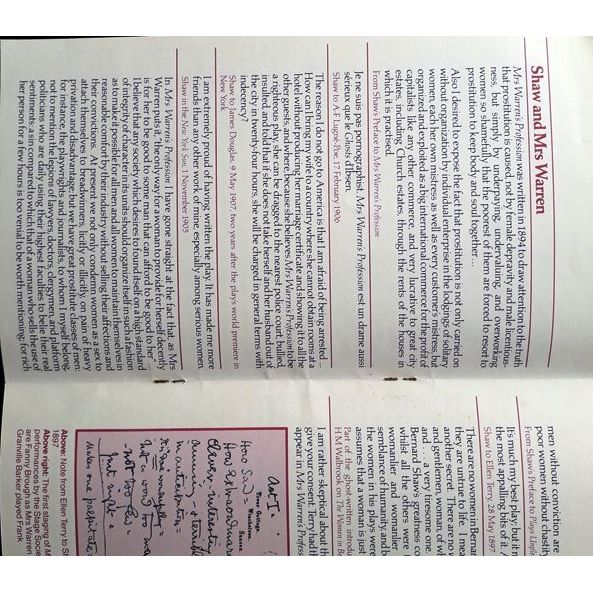 Shaw and Mrs Warren
Mrs Warren's Profession was written in 1894 to draw attention to the truth
that prostitution is caused, not by female depravity and male licentious-
ness, but simply by underpaying, undervaluing, and overworking
women so shamefully that the poorest of them are forced to resort to
prostitution to keep body and soul together...
Also I desired to expose the fact that prostitution is not only carried on
without organization by individual enterprise in the lodgings of solitary
women, each her own mistress as well as every customer's mistress, but
organized and exploited as a big international commerce for the profit of
capitalists like any other commerce, and very lucrative to great city
estates, including Church estates, through the rents of the houses in
which it is practised.
From Shaw's Preface to Mrs Warren's Profession
Je ne suis pas pornographist. Mrs Warren's Profession est un drame aussi
sérieux que le Cohosts d'Ibsen.
Shaw to A.F. Lugné-Poe, 17 February 1906
The reason I do not go to America is that I am afraid of being arrested...
How can I bring my wife to a country where she cannot obtain rooms at a
hotel without producing her marriage certificate and showing it to all the
other guests, and where, because she believes Mrs Warren's Profession to be
a righteous play, she can be dragged to the nearest police court, bullied,
insulted, and told that if she does not take herself and her husband out of
the city in twenty-four hours, she will be charged in general terms with
indecency?
Shaw to James Douglas, 9 May 1907, two years after the play's world premiere in
New York
I am extremely proud of having written the play. It has made me more
friends than any other word of mine, especially among serious women.
Shaw in the New York Sun, 1 November 1905
In Mrs Warren's Profession I have gone straight at the fact that, as Mrs
Warren puts it, 'the only way for a woman to provide for herself decently
is for her to be good to some man that can afford to be good to her'...
I believe that any society which desires to found itself on a high standard
of integrity of character in its units should organize itself in such a fashion
as to make it possible for all men and all women to maintain themselves in
reasonable comfort by their industry without selling their affections and
their convictions. At present we not only condemn women as a sex to
attach themselves to breadwinners, licitly or illicitly, on pain of heavy
privation and disadvantage; but we have great prostitute classes of men:
for instance, the playwrights and journalists, to whom I myself belong,
not to mention the legions of lawyers, doctors, clergymen, and platform
politicians who are daily using their highest faculties to belie their real
sentiments: a sin compared to which that of a woman who sells the use of
her person for a few hours is too venial to be worth mentioning; for rich
men without conviction are
poor women without chastity
From Shaw's Preface to Plays Unpl
It's much my best play; but it
the most appalling bits of it.
Shaw to Ellen Terry, 28 May 1897
There are no women in Bernar
they are not true to life. I mean
another secret: there are no wo
and gentlemen, woman, of wh
and ... a very tiresome one.
Bernard Shaw's greatness co
whilst all the others were
womanlier and womanlier
semblance of humanity, and b
the women in his plays were
assumes that a woman is just
Part of the ghost-written introdu
H M Walbrook on The Women in Be
I am rather skeptical about th
give your consent. Jerry had it
appear in Mrs Warren's Profess
Act I.
How Sad =
How extraordinar
clever interesting
amusing & terrible
not a word too ma
not too less
Just right =
Above: Note from Ellen Terry to Sh
1897
Above right: The first staging of M
performances by the Stage Socie
are Fanny Brough as Mrs Warren
Granville Barker playing Frank